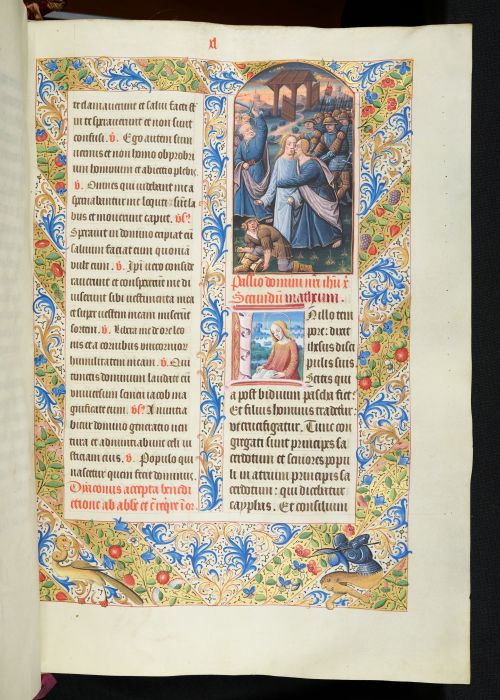 xl
te clamauerunt et salui facti st̄
in te sperauerunt et non sunt
confusi. v̄. Ego autem sum
uermis et non homo obprobri
um hominum et abiectio plebis.
v̄. Omnes qui uidebant me a
spernabantur me locuti sūt la
bis et mouerunt caput. v̄s.
Sperauit in domino eripiat eū
saluum faciat eum quoniā
uult eum. v̄. Ip̄i uero conside
rauerunt et conspexerūt me di
uiserunt sibi uestimenta mea
et super uestem meam miserūt
sortem. v̄. Libera me de ore leo
nis et a cornibus unicornior
humilitatem meam. v̄. Qui
timetis dominum laudate eū
uniuersum semen iacob ma
gnificate eum. v̄s. Annuntia
bitur domino generatio uen
tura et adnuntiabunt celi iu
sticiam eius. v̄. Populo qui
nascetur quem fecit dominus.
Dyaconus accepta benedi
ctione ab abb̄e et
Passio domini nr̄i ihū x̄
Secundū matheum.
In illo tem
pore: dixit
ihesus disci
pulis suis.
Scitis qui
a post biduum pascha fiet:
Et filius hominis tradetur
ut crucifigatur. Tunc con
gregati sunt principes sa
cerdotum et seniores popu
li in atrium principis sa
cerdotum: qui dicebatur
cayphas. Et consilium